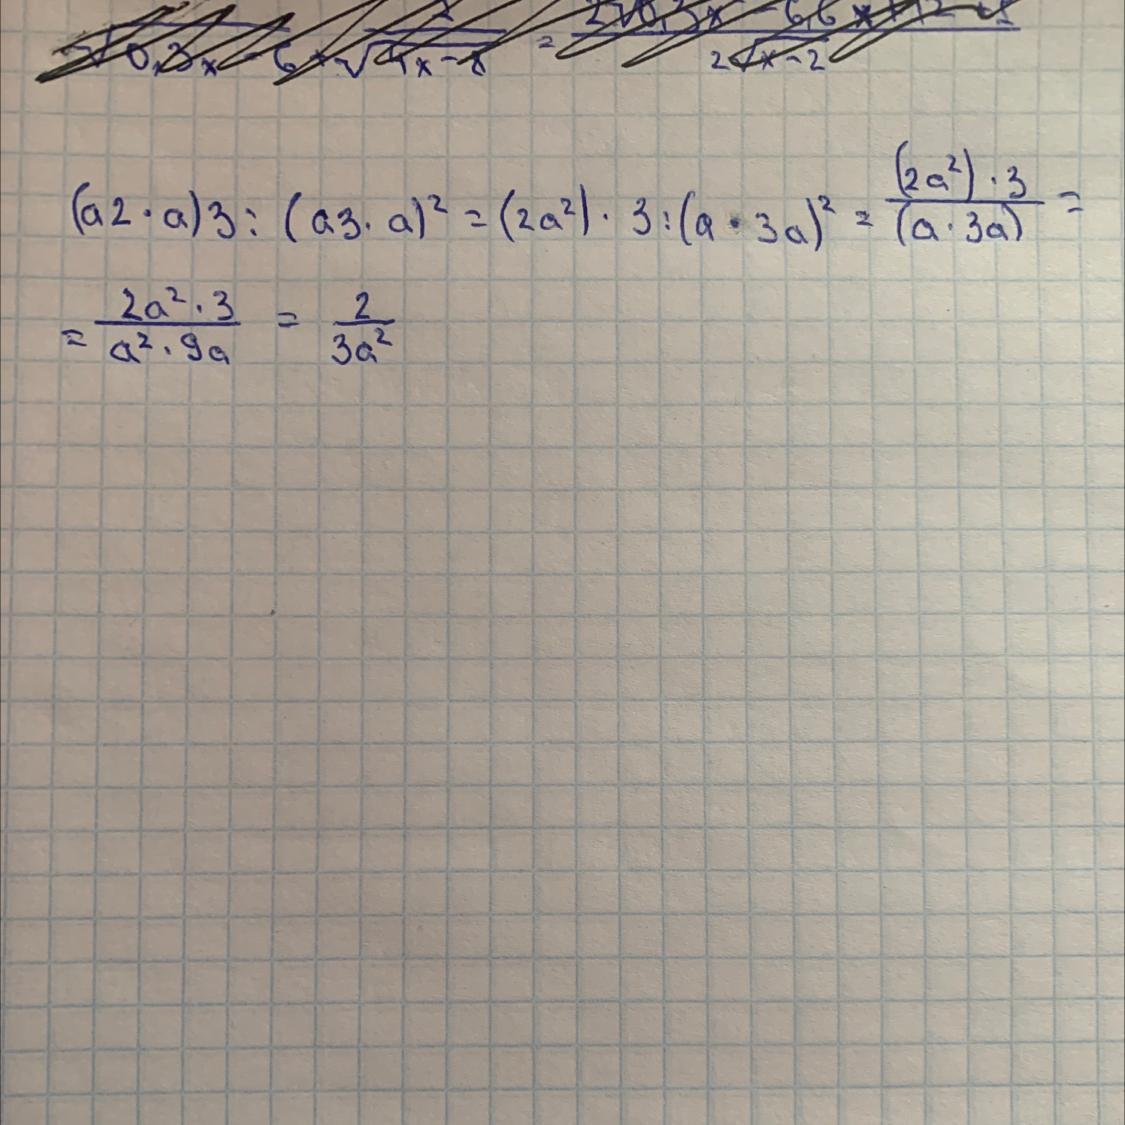 (a2·a)3:(a3·a)²=(2a²)·3:(a·3a)²=(2a²)·3/(a·3a)=
=2a²·3/a²·9a=2/3a²